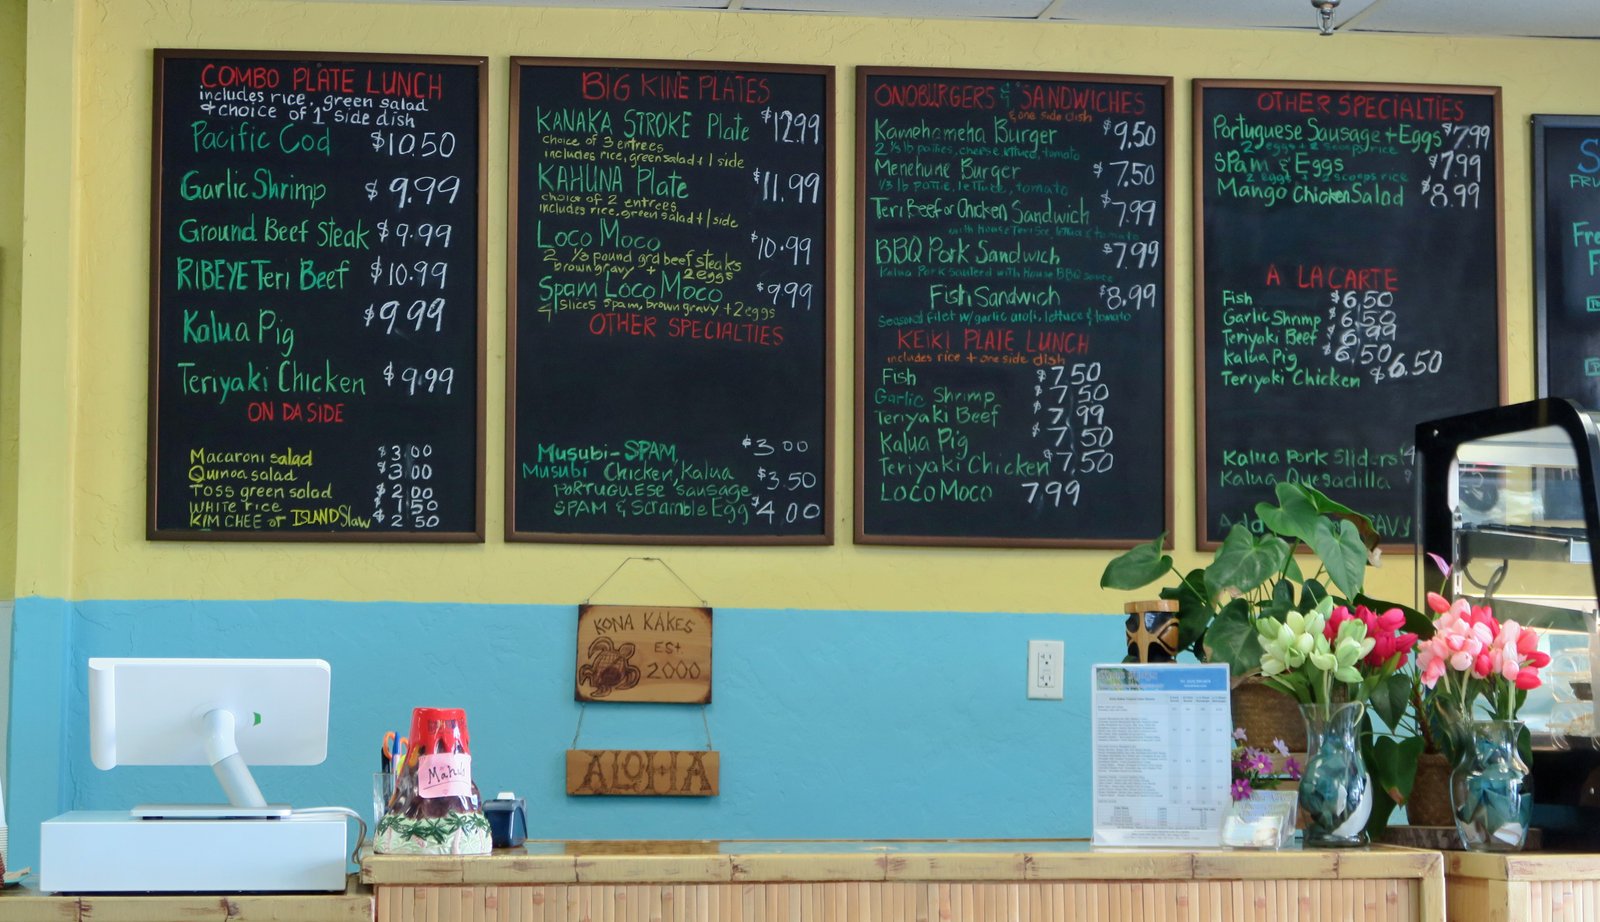 COMBO PLATE LUNCH
includes rice, green salad
+ choice of 1 side dish
Pacific Cod $10.50
Garlic Shrimp $9.99
Ground Beef Steak $9.99
RIBEYE Teri Beef $10.99
Kalua Pig $9.99
Teriyaki Chicken $9.99
ON DA SIDE
Macaroni salad $3.00
Quinoa salad $3.00
Toss green salad $2.00
WHITE rice $1.50
KIM CHEE or ISLAND Slaw $2.50
BIG KINE PLATES
KANAKA STROKE Plate $12.99
choice of 3 entrees
includes rice, green salad + 1 side
KAHUNA Plate $11.99
choice of 2 entrees
includes rice, green salad + 1 side
Loco Moco $10.99
2 1/3 pound grd beef steaks
brown gravy + 2 eggs
Spam Loco Moco $9.99
4 slices spam, brown gravy + 2 eggs
OTHER SPECIALTIES
Musubi-SPAM $3.00
Musubi Chicken, Kalua $3.50
PORTUGUESE sausage
SPAM & Scramble Egg $4.00
ONOBURGERS & SANDWICHES
& one side dish
Kamehameha Burger $9.50
2 1/3 lb patties, cheese, lettuce, tomato
Menehune Burger $7.50
1/3 lb pattie, lettuce, tomato
Teri Beef or Chicken Sandwich $7.99
with House Teri Sce, lettuce & tomato
BBQ Pork Sandwich $7.99
Kalua Pork sauteed with House BBQ sauce
Fish Sandwich $8.99
Seasonal filet w/ garlic aioli, lettuce & tomato
KEIKI PLATE LUNCH
includes rice + one side dish
Fish $7.50
Garlic Shrimp $7.50
Teriyaki Beef $7.99
Kalua Pig $7.50
Teriyaki Chicken $7.50
LOCO MOCO 7.99
OTHER SPECIALTIES
Portuguese Sausage + Eggs $7.99
2 eggs + 2 scoops rice
Spam & Eggs $7.99
2 eggs 2 scoops rice
Mango Chicken Salad $8.99
A LA CARTE
Fish $6.50
Garlic Shrimp $6.50
Teriyaki Beef $6.99
Kalua Pig $6.50
Teriyaki Chicken $6.50
Kalua Pork Sliders $4
Kalua Quesadilla $
Add
KONA KAKES
EST.
2000
ALOHA